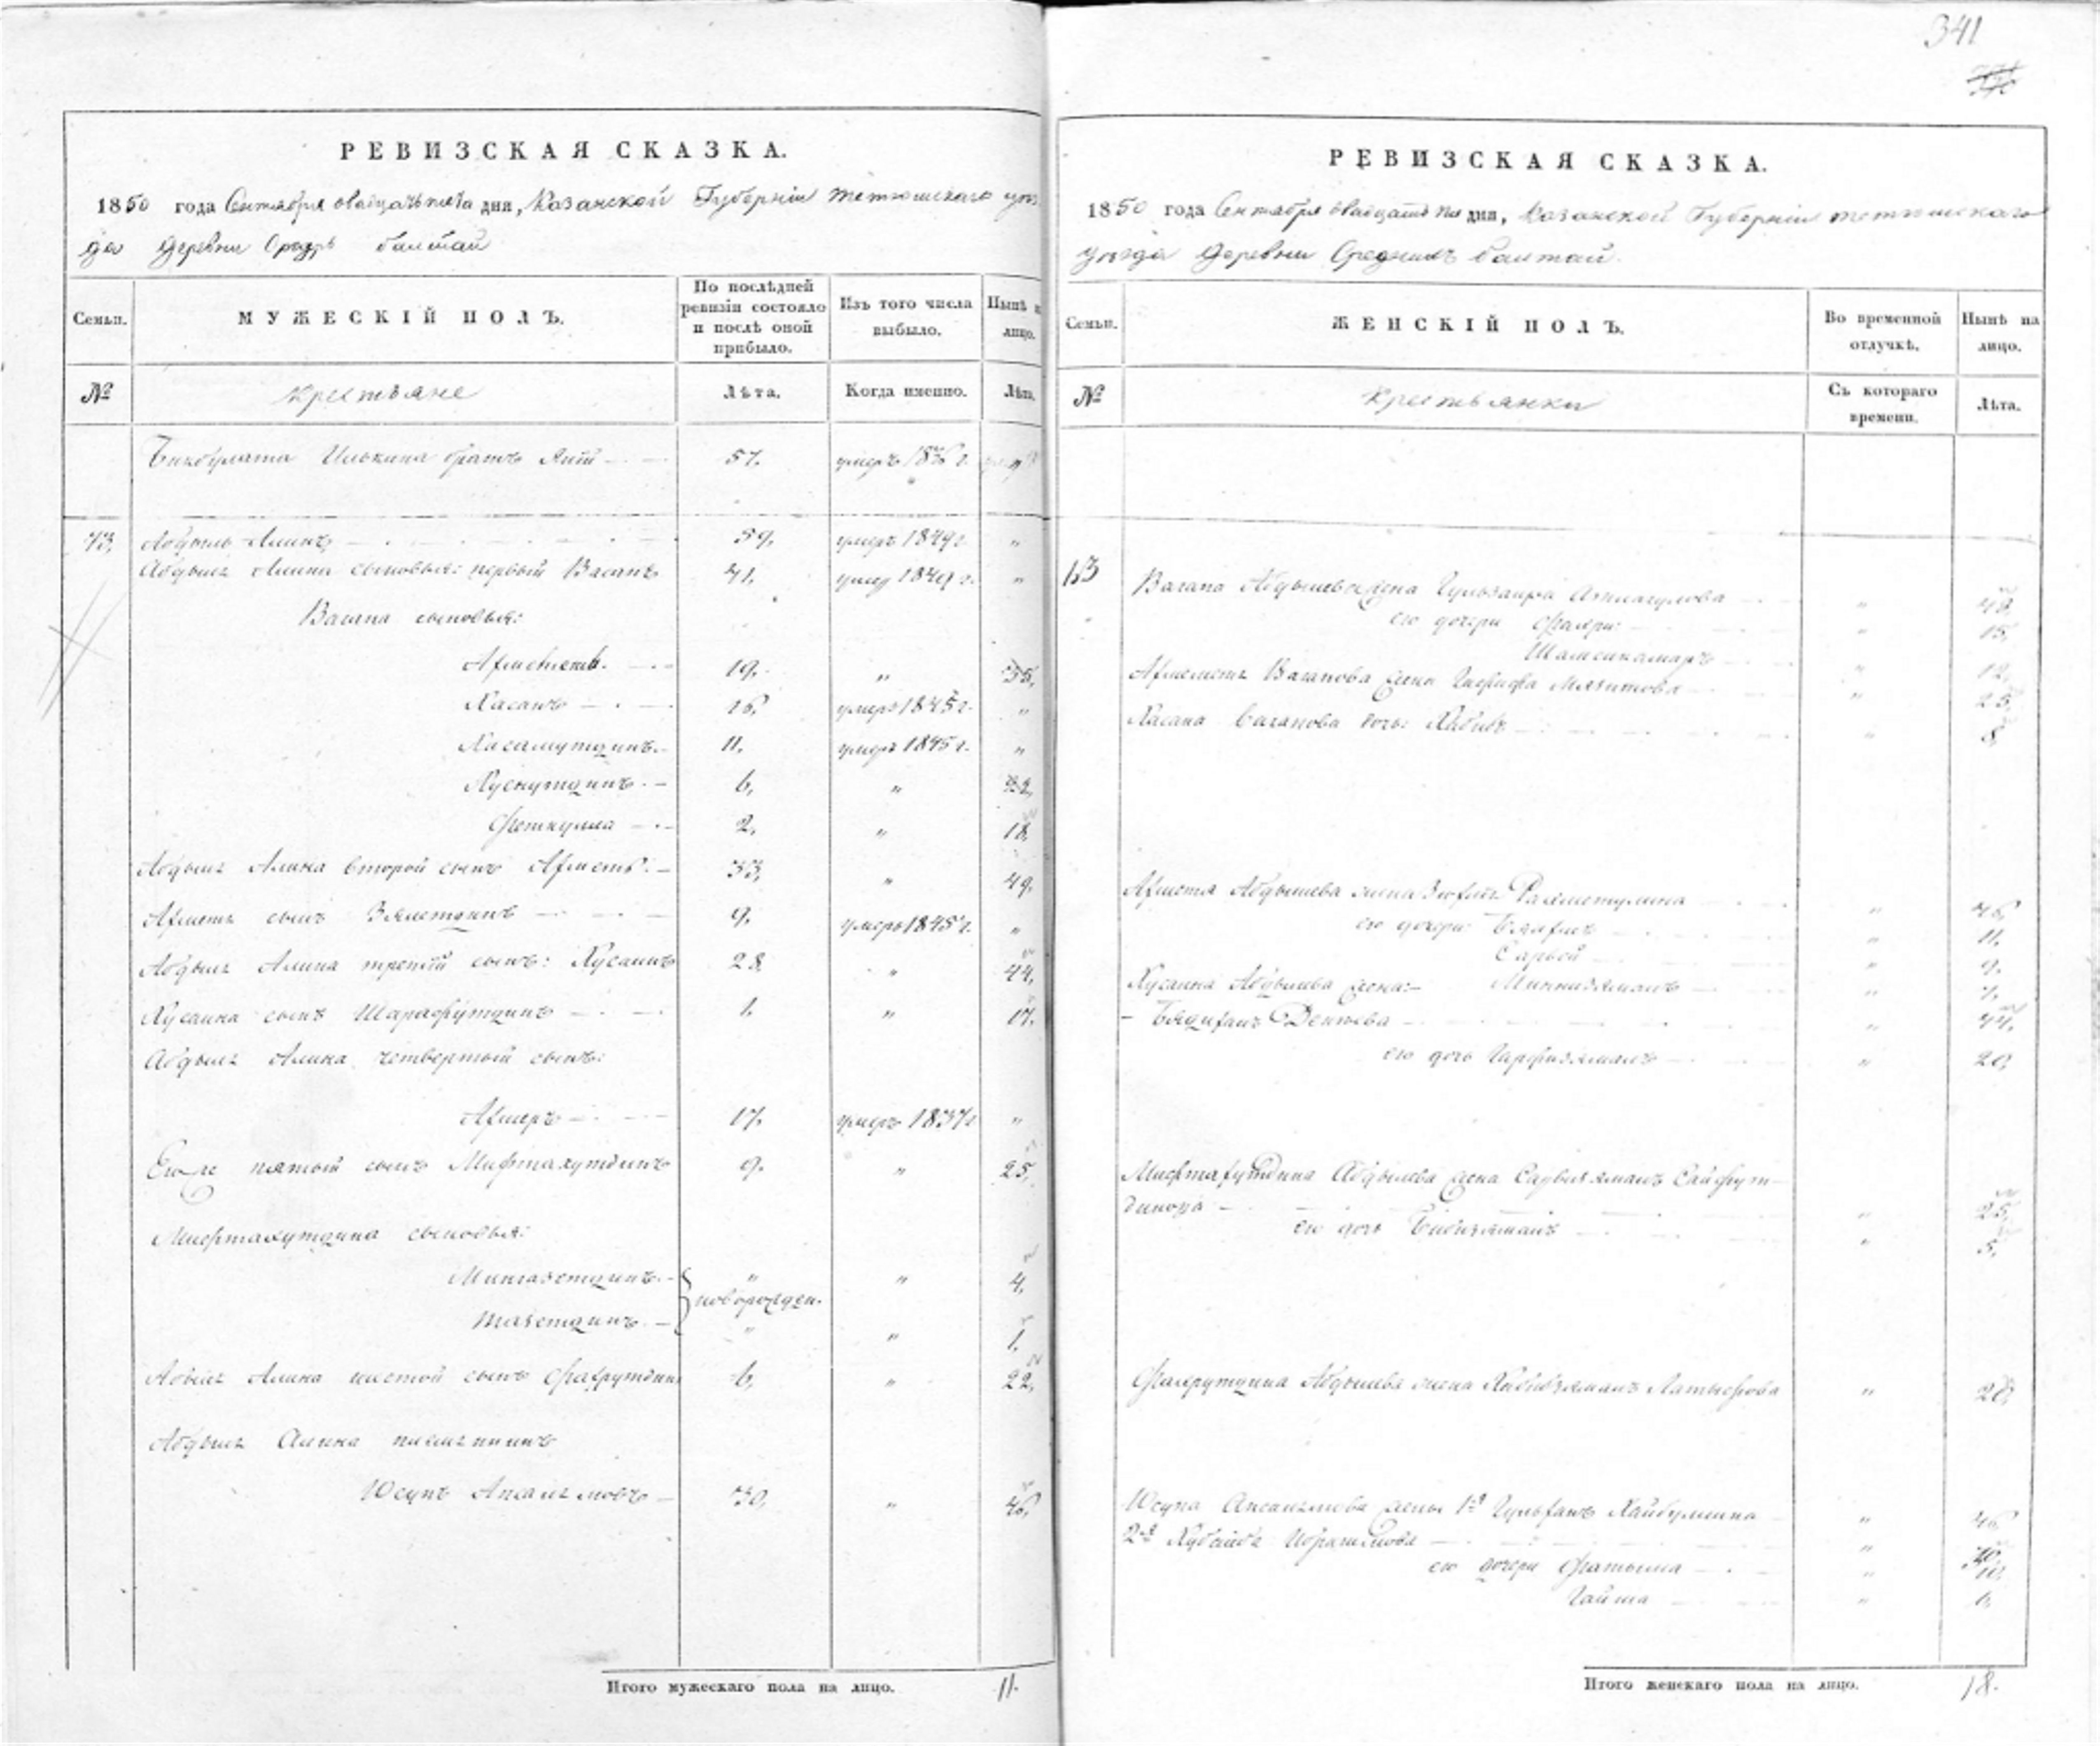 341
РЕВИЗСКАЯ СКАЗКА.
1850 года Сентября двадцать пятаго дня, Казанской Губерніи тетюшскаго уѣз
да деревни Средн балтай
Семьи. МУЖЕСКІЙ ПОЛЪ. По послѣдней ревизіи состояло и послѣ оной прибыло. Изъ того числа выбыло. Нынѣ на лицо.
№ крестьяне Лѣта. Когда именно. Лѣта.
Бикбулата Илькина братъ 57. умеръ 18 г. "
73, Абдыль Алинъ 59, умеръ 1849 г. "
Абдыла Алина сыновья: первый Вагапъ 41, умер 1849 г. "
Вагапа сыновья:
Ахметь 19. " 35,
Хасанъ 16, умеръ 1845 г. "
Хасамутдинъ 11. умеръ 1845 г. "
Хуснутдинъ 6, " 22,
Феткулла 2, " 18,
Абдыла Алина второй сынъ Ахметь 33, " 49,
Ахметя сынъ Зялетдинъ 9, умеръ 1845 г. "
Абдыла Алина третій сынъ: Хусаинъ 28 " 44,
Хусаина сынъ Шарафутдинъ 1. " 17.
Абдыла Алина четвертый сынъ:
Ахмеръ 17. умеръ 1837 г. "
Его же пятый сынъ Мифтахутдинъ 9. " 25,
Мифтахутдина сыновья:
Мингазетдинъ " " 4,
новорожден.
Тазетдинъ " " 1,
Абдыла Алина шестой сынъ Фахрутдин 6, " 22,
Абдыла Алина племянникъ
Юсупъ 30, " 46,
Итого мужескаго пола на лицо. 11.
РЕВИЗСКАЯ СКАЗКА.
1850 года Сентября двадцать пя дня, Казанской Губерніи тетюшскаго
уѣзда деревни Среднихъ балтай.
Семьи. ЖЕНСКІЙ ПОЛЪ. Во временной отлучкѣ. Нынѣ на лицо.
№ крестьянки Съ котораго времени. Лѣта.
Вагапа Абдылева жена Гульзаира " 48,
его дочери Фахри: " 15,
Шамсикамаръ " 12,
Ахметя Вагапова жена " 25,
Хасана Вагапова дочь: " 8,
Ахметя Абдылева жена Рахметулина " 46,
его дочери " 11,
Сарвей " 9.
Хусаина Абдылева жена: Миннизямалъ " 7,
" 44,
его дочь " 20,
Мифтахутдина Абдылева жена Сайфут-
динова " 25,
его дочь Бибизямалъ " 5,
Фахрутдина Абдылева жена Хабибзямалъ Латыпова " 20,
Юсупа жены 1я Гульханъ Хайбулина " 46
2я Ибрагимова "
его дочери Фатыма " 10,
" 6,
Итого женскаго пола на лицо. 18.